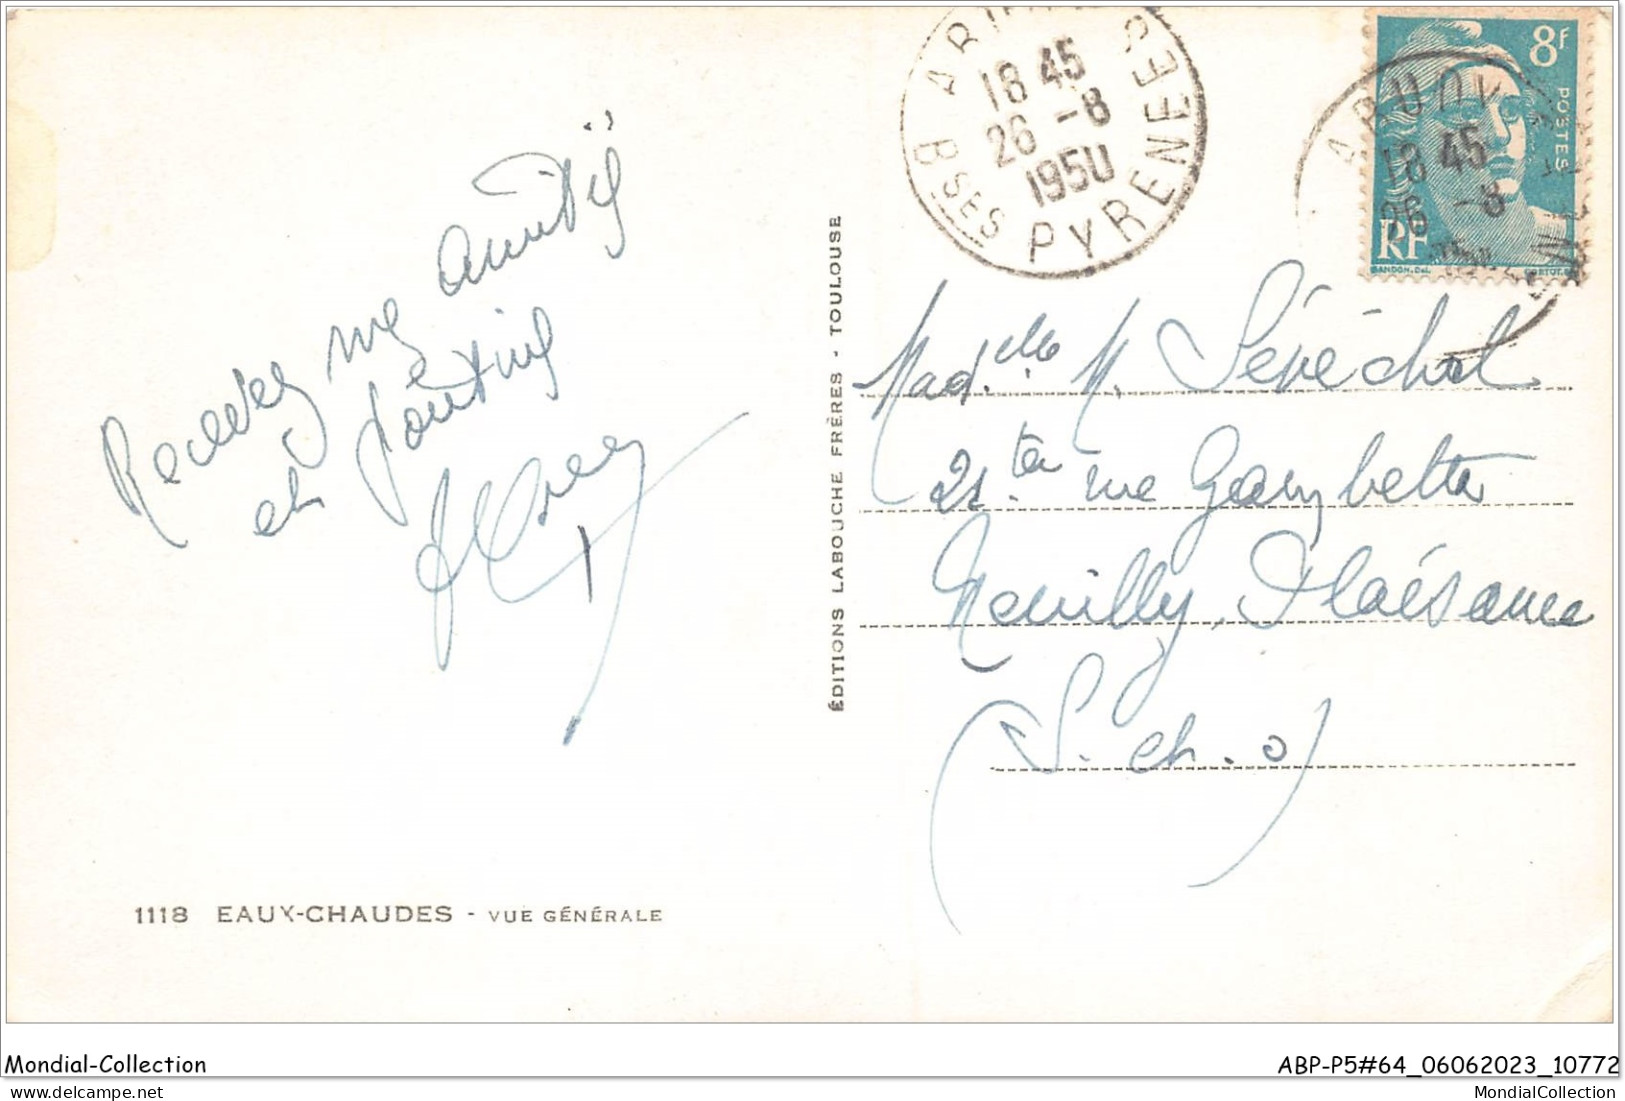 18 45
26 -8
1950
Bses PYRENEES
8F
POSTES
18 45
26 -8
RF
GANDON.Del.
CORTOT.
Recevez mes amitiés
et
Madelle M. Sénéchal
21ter rue Gambetta
Neuilly, Plaisance
(S. et. O)
ÉDITIONS LABOUCHE FRÈRES - TOULOUSE
1118 EAUX-CHAUDES - VUE GÉNÉRALE
Mondial-Collection
ABP-P5#64_06062023_10772
MondialCollection